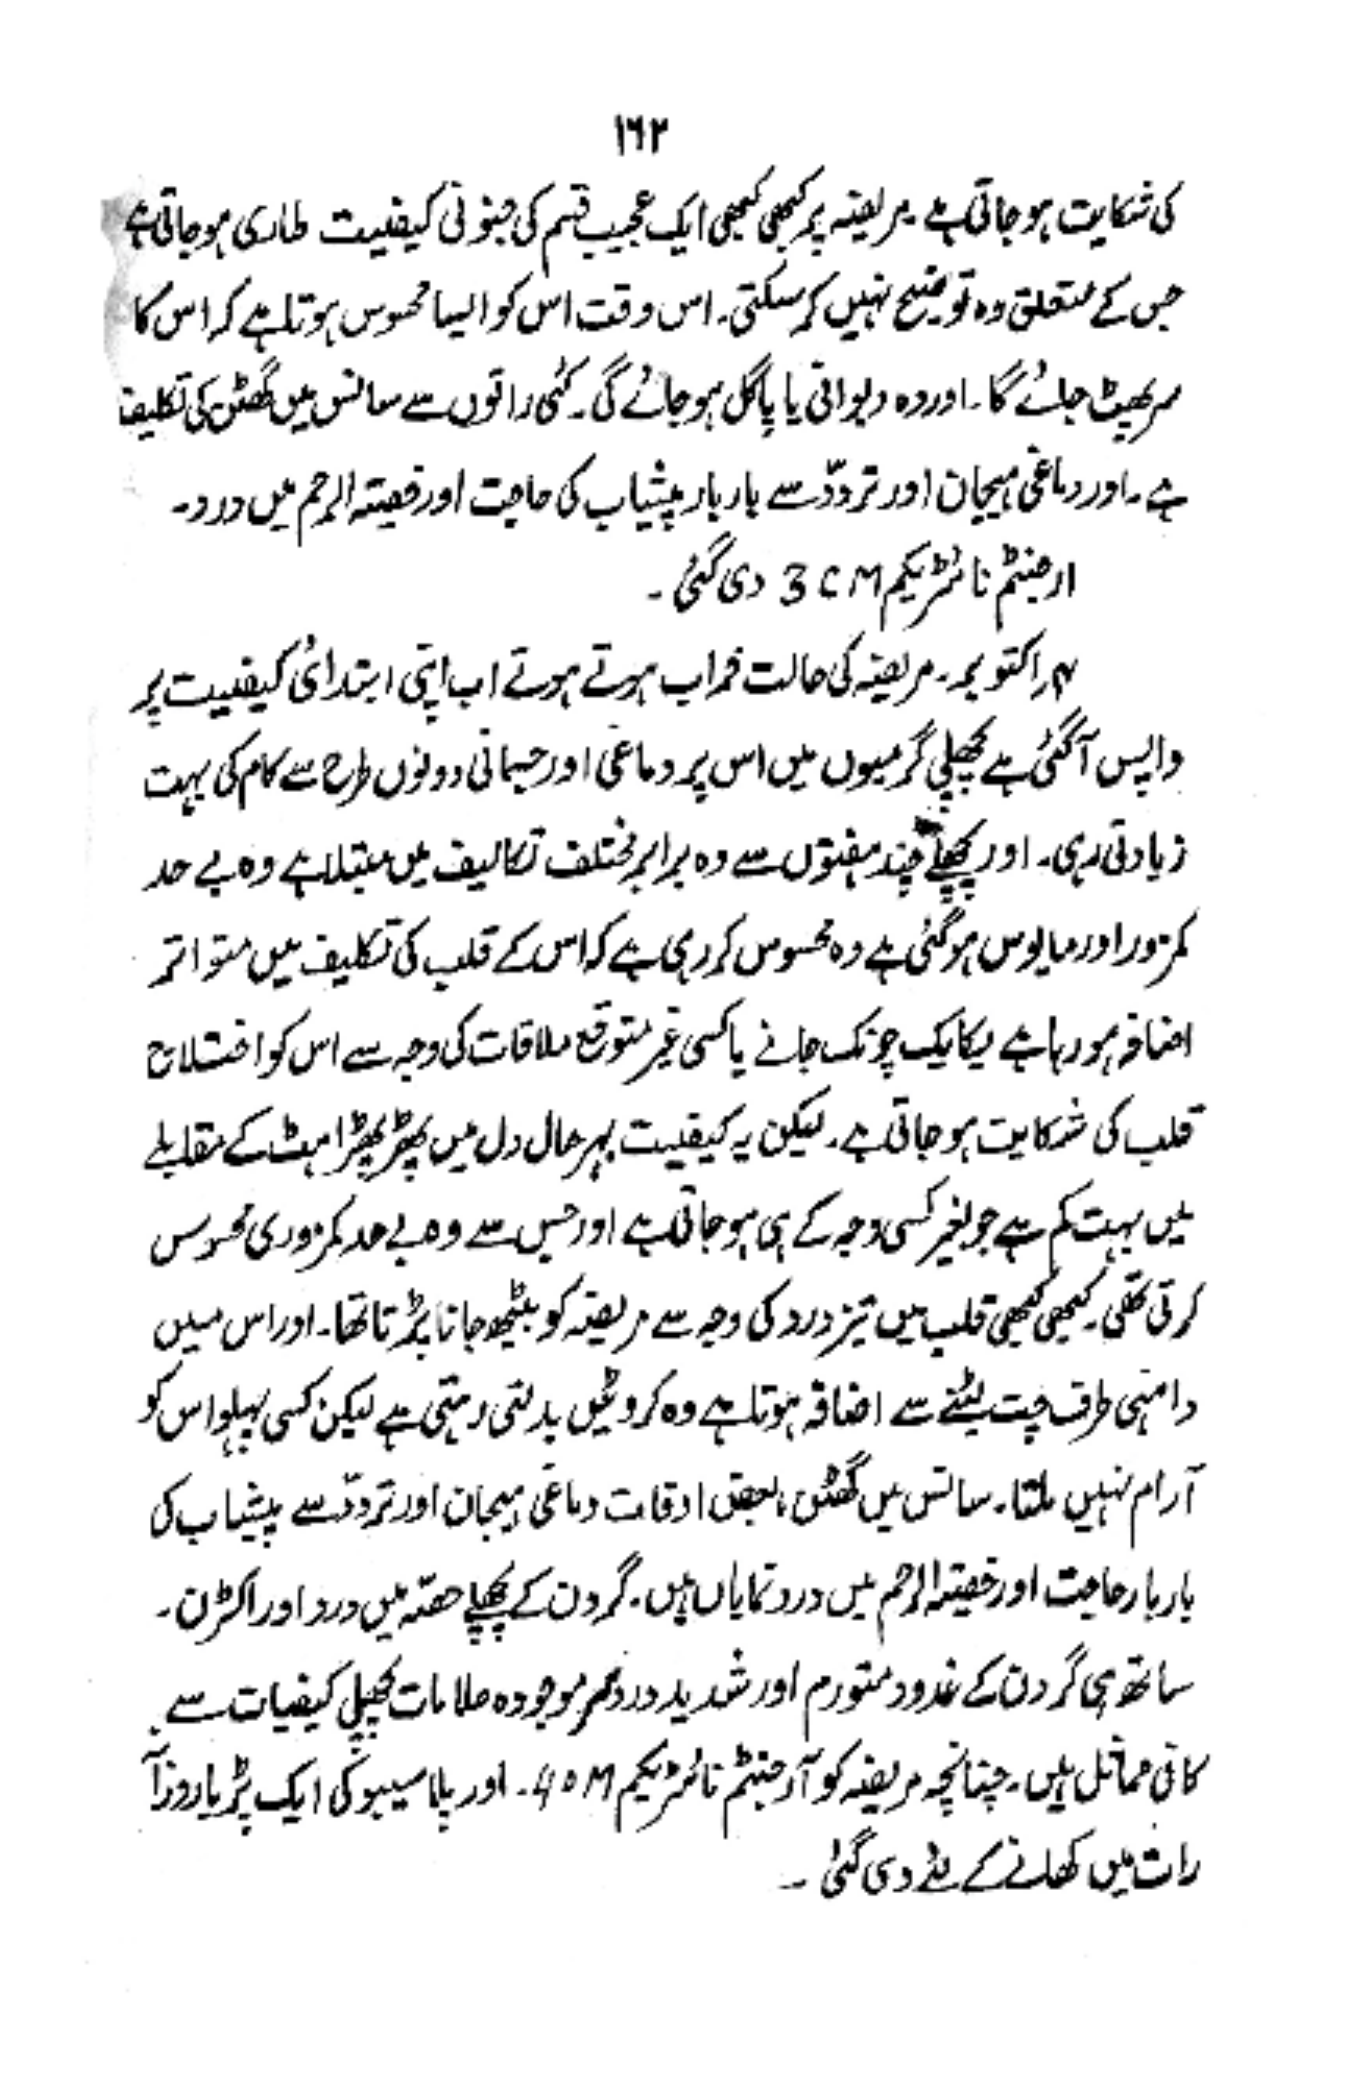 ۱۶۲
کی شکایت ہوجاتی ہے۔ مریضہ پر کبھی کبھی ایک عجیب قسم کی جنونی کیفیت طاری ہوجاتی ہے
جس کے متعلق وہ توضیح نہیں کرسکتی۔ اس وقت اس کو ایسا محسوس ہوتا ہے کہ اس کا
سر پھٹ جائے گا۔ اور وہ دیوانی یا پاگل ہوجائے گی۔ کئی راتوں سے سانس میں گھٹن کی تکلیف
ہے۔ اور دماغی ہیجان اور تردّد سے بار بار پیشاب کی حاجت اور خصیتہ الرحم میں درد۔
ارجنٹم نائٹریکم 3 CM دی گئی۔
۴؍ اکتوبر۔ مریضہ کی حالت خراب ہوتے ہوتے اب اپنی ابتدائی کیفیت پر
واپس آگئی ہے پچھلی گرمیوں میں اس پر دماغی اور جسمانی دونوں طرح سے کام کی بہت
زیادتی رہی۔ اور پچھلے چند ہفتوں سے وہ برابر مختلف تکالیف میں مبتلا ہے وہ بے حد
کمزور اور مایوس ہوگئی ہے وہ محسوس کررہی ہے کہ اس کے قلب کی تکلیف میں متواتر
اضافہ ہورہا ہے یکایک چونک جانے یا کسی غیر متوقع ملاقات کی وجہ سے اس کو اختلاج
قلب کی شکایت ہوجاتی ہے۔ لیکن یہ کیفیت بہرحال دل میں پھڑپھڑاہٹ کے مقابلے
میں بہت کم ہے جو بغیر کسی وجہ کے ہی ہوجاتی ہے اور جس سے وہ بے حد کمزوری محسوس
کرتی تھی۔ کبھی کبھی قلب میں تیز درد کی وجہ سے مریضہ کو بیٹھ جانا پڑتا تھا۔ اور اس میں
داہنی طرف چت لیٹنے سے اضافہ ہوتا ہے وہ کروٹیں بدلتی رہتی ہے لیکن کسی پہلو اس کو
آرام نہیں ملتا۔ سانس میں گھٹن، بعض اوقات دماغی ہیجان اور تردّد سے پیشاب کی
بار بار حاجت اور خصیتہ الرحم میں درد نمایاں ہیں۔ گردن کے پچھلے حصّہ میں درد اور اکڑن۔
ساتھ ہی گردن کے غدود متورم اور شدید درد سر موجودہ علامات پچھلی کیفیات سے
کافی مماثل ہیں۔ چنانچہ مریضہ کو آرجنٹم نائٹریکم 40M۔ اور پلاسیبو کی ایک پڑیا روزآ
رات میں کھانے کے لئے دی گئی۔